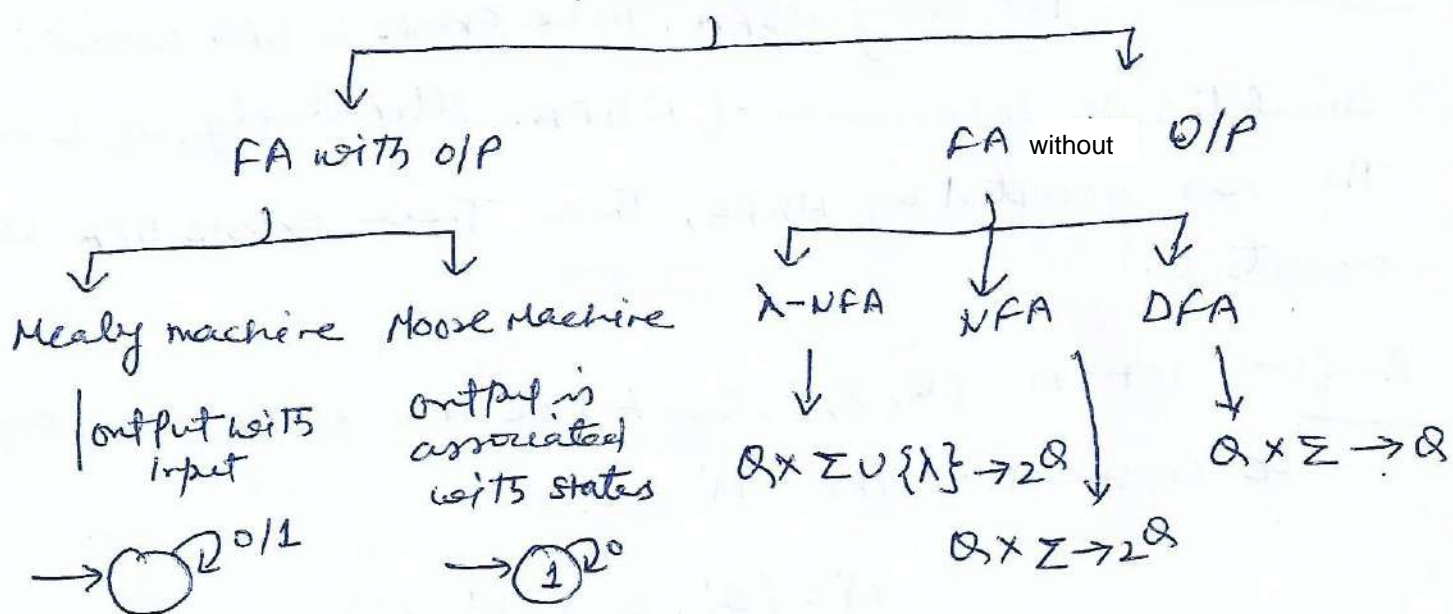 FA with O/P
FA without O/P
Mealy machine
Moore Machine
λ-NFA
NFA
DFA
output with
input
output is
associated
with states
Q × Σ ∪ {λ} → 2^Q
Q × Σ → 2^Q
Q × Σ → Q
0/1
1
0